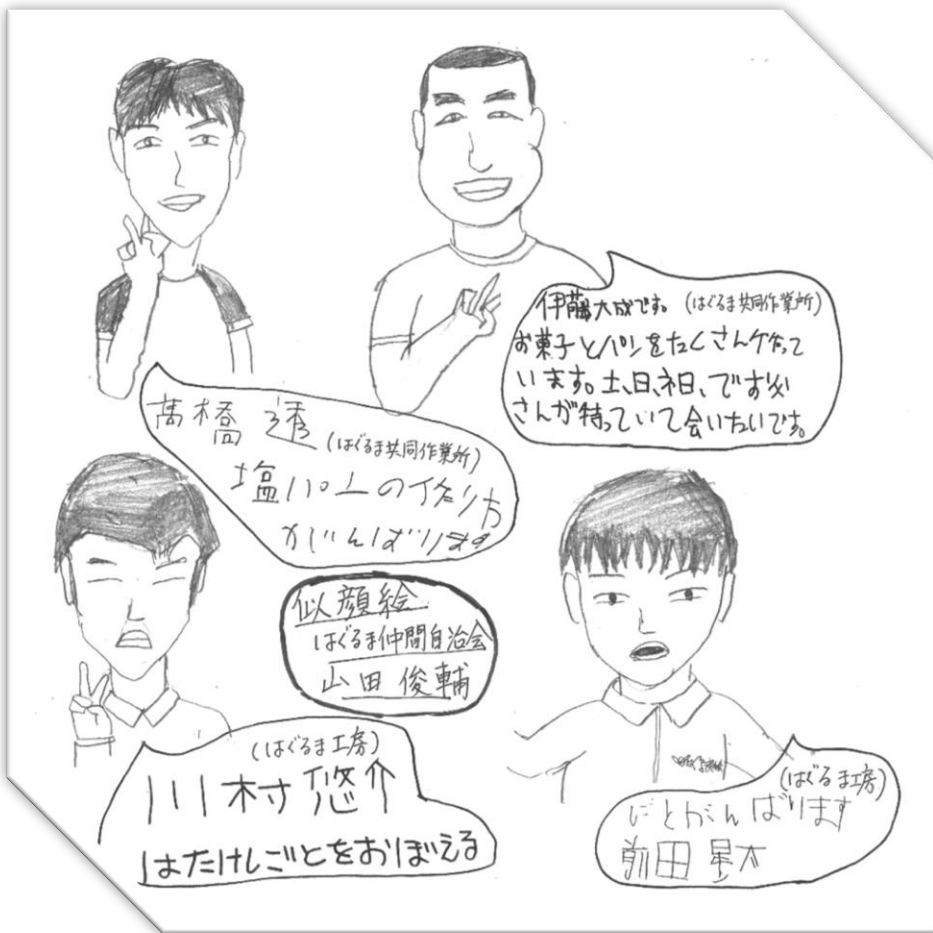 伊藤大成です。(はぐるま共同作業所)
お菓子とパンをたくさん作って
います。土、日、祝日、です
さんが待っていて会いたいです。
髙橋 透
(はぐるま共同作業所)
塩パンの作り方
がんばります
似顔絵
はぐるま仲間自治会
山田 俊輔
(はぐるま工房)
川村悠介
はたけしごとをおぼえる
(はぐるま工房)
しごとがんばります
前田 星太